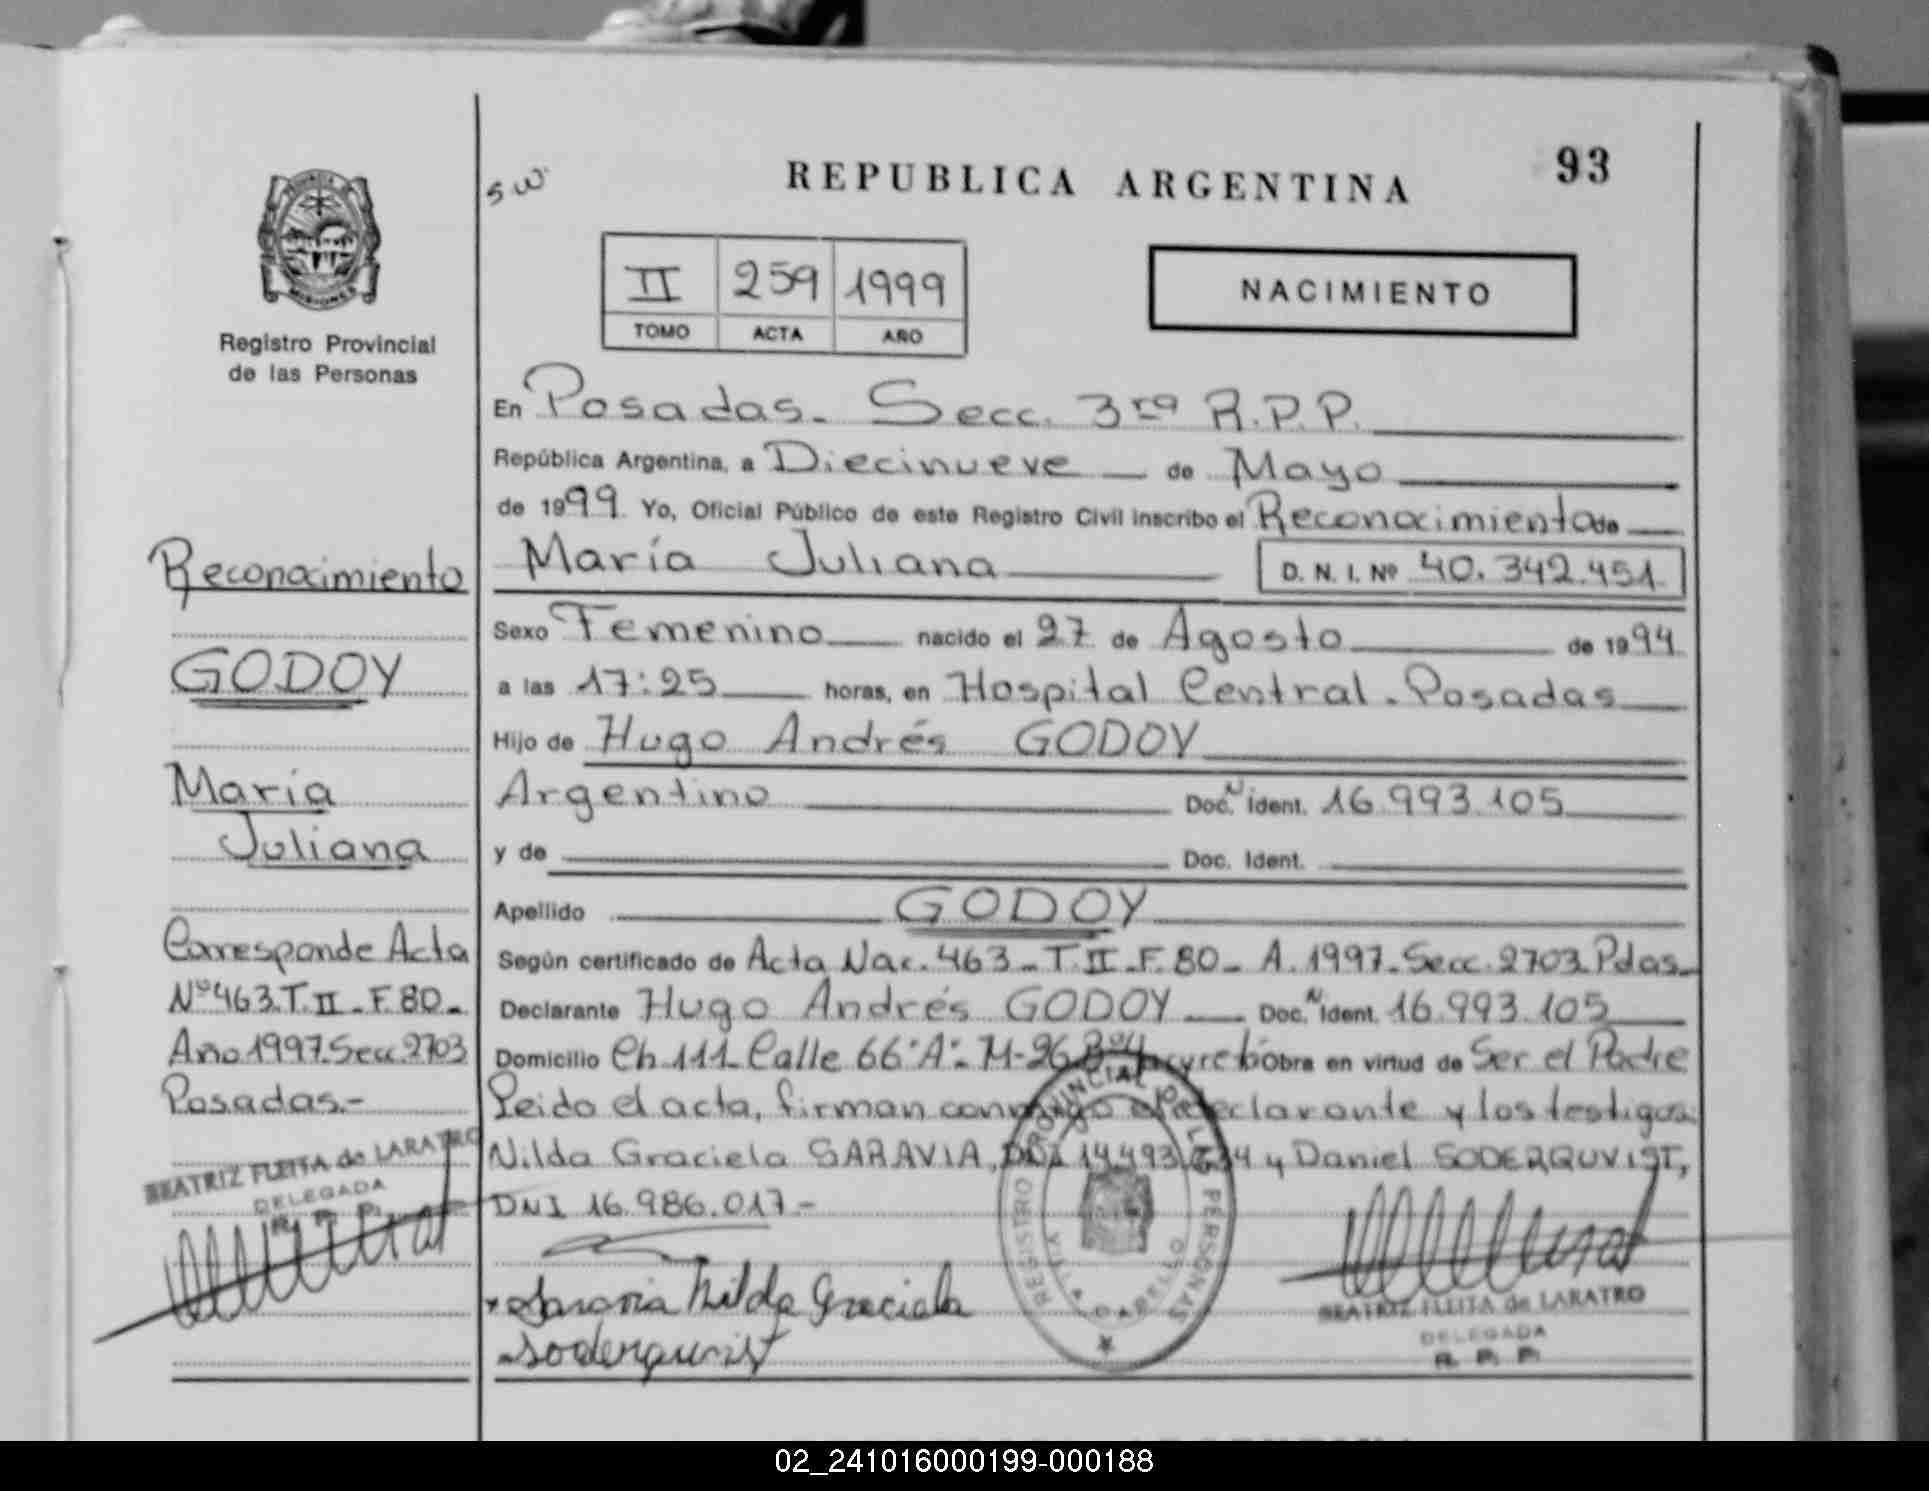 93
S.W
REPUBLICA ARGENTINA
MISIONES
Registro Provincial
de las Personas
II 259 1999
TOMO ACTA AÑO
NACIMIENTO
En Posadas. Secc. 3ra R.P.P.
República Argentina, a Diecinueve de Mayo
de 1999. Yo, Oficial Público de este Registro Civil inscribo el Reconocimiento de
María Juliana D. N. I. Nº 40.342.451
Sexo Femenino nacido el 27 de Agosto de 1994
a las 17:25 horas, en Hospital Central. Posadas
Hijo de Hugo Andrés GODOY
Argentino Doc. N Ident. 16.993.105
y de Doc. Ident.
Apellido GODOY
Según certificado de Acta Nac. 463 - T. II - F. 80 - A. 1997. Secc. 2703 Pdas.
Declarante Hugo Andrés GODOY Doc. N Ident. 16.993.105
Domicilio Ch 111 Calle 66 "A" M-26 Obra en virtud de Ser el Padre
Leido el acta, firman conmigo el Declarante y los testigos:
Nilda Graciela SARAVIA, DNI 14.493. y Daniel SODERQUVIST,
DNI 16.986.017.-
Saravia Nilda Graciela
Soderquvist
REGISTRO PROVINCIAL DE LAS PERSONAS
VILLA CABELLO
BEATRIZ FLEITA de LARATRO
DELEGADA
R. P. P.
Reconocimiento
GODOY
María
Juliana
Corresponde Acta
Nº 463. T. II - F. 80.
Año 1997. Secc. 2703
Posadas.-
BEATRIZ FLEITA de LARATRO
DELEGADA
R. P. P.
02_241016000199-000188